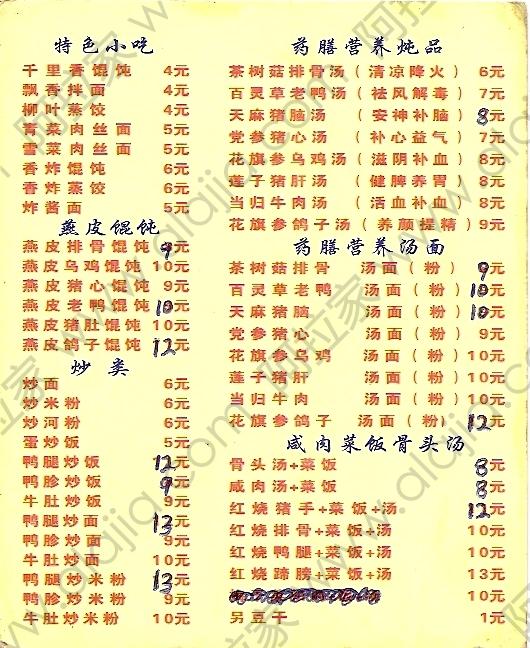 特色小吃
千里香馄饨 4元
飘香拌面 4元
柳叶蒸饺 4元
青菜肉丝面 5元
雪菜肉丝面 5元
香炸馄饨 6元
香炸蒸饺 6元
炸酱面 5元
燕皮馄饨
燕皮排骨馄饨 9元
燕皮乌鸡馄饨 10元
燕皮猪心馄饨 9元
燕皮老鸭馄饨 10元
燕皮猪肚馄饨 10元
燕皮鸽子馄饨 12元
炒类
炒面 6元
炒米粉 6元
炒河粉 6元
蛋炒饭 5元
鸭腿炒饭 12元
鸭胗炒饭 9元
牛肚炒饭 9元
鸭腿炒面 13元
鸭胗炒面 9元
牛肚炒面 10元
鸭腿炒米粉 13元
鸭胗炒米粉 9元
牛肚炒米粉 10元
药膳营养炖品
茶树菇排骨汤（清凉降火）6元
百灵草老鸭汤（祛风解毒）7元
天麻猪脑汤（安神补脑）8元
党参猪心汤（补心益气）7元
花旗参乌鸡汤（滋阴补血）8元
莲子猪肝汤（健脾养胃）8元
当归牛肉汤（活血补血）8元
花旗参鸽子汤（养颜提精）9元
药膳营养汤面
茶树菇排骨 汤面（粉）9元
百灵草老鸭 汤面（粉）10元
天麻猪脑 汤面（粉）10元
党参猪心 汤面（粉）9元
花旗参乌鸡 汤面（粉）10元
莲子猪肝 汤面（粉）10元
当归牛肉 汤面（粉）10元
花旗参鸽子 汤面（粉）12元
咸肉菜饭骨头汤
骨头汤+菜饭 8元
咸肉汤+菜饭 8元
红烧猪手+菜饭+汤 12元
红烧排骨+菜饭+汤 10元
红烧鸭腿+菜饭+汤 10元
红烧蹄膀+菜饭+汤 13元
10元
另豆干 1元
阿拉家 www.alajia.com